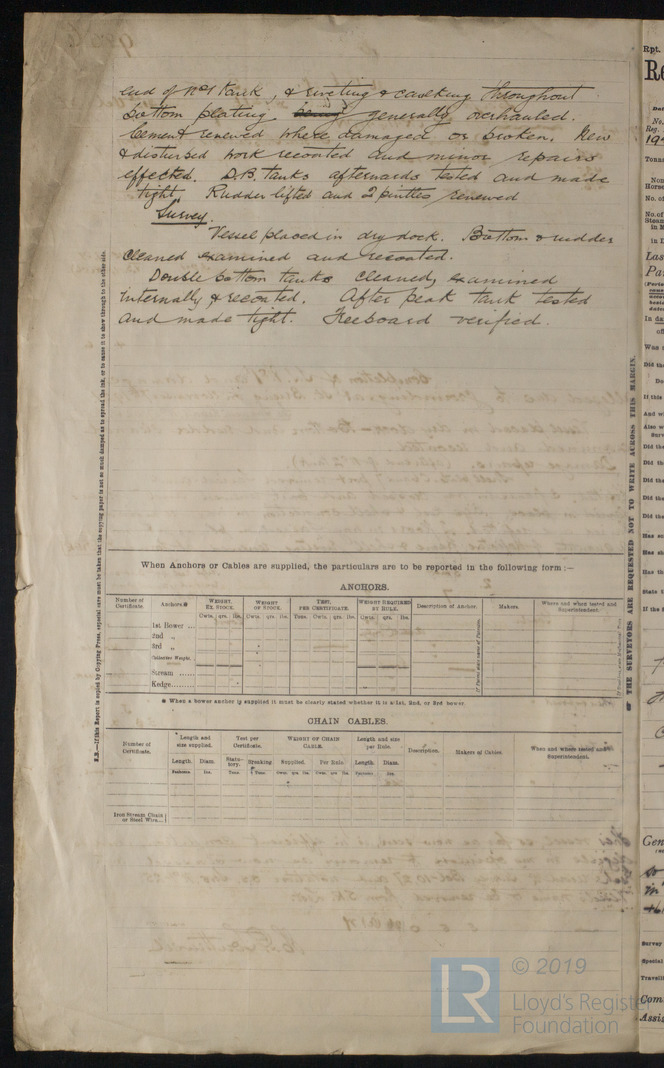 end of No1 tank, & riveting & caulking throughout
bottom plating being generally overhauled.
Cement renewed where damaged or broken. New
& disturbed work recoated and minor repairs
effected. D.B. tanks afterwards tested and made
tight. Rudder lifted and 2 pintles renewed
Survey.
Vessel placed in dry dock. Bottom & rudder
cleaned examined and recoated.
Double bottom tanks cleaned, examined
internally & recoated. After peak tank tested
and made tight. Freeboard verified.
When Anchors or Cables are supplied, the particulars are to be reported in the following form:—
ANCHORS.
Number of Certificate. Anchors※ WEIGHT, EX STOCK. WEIGHT OF STOCK. TEST, PER CERTIFICATE. WEIGHT REQUIRED BY RULE. Description of Anchor. Makers. Where and when tested and Superintendent.
Cwts. qrs. lbs. Cwts. qrs. lbs. Tons. Cwts. qrs. lbs. Cwts. qrs. lbs.
1st Bower ...
2nd „
3rd „
Collective Weight.
Stream ......
Kedge......
※ When a bower anchor is supplied it must be clearly stated whether it is a 1st, 2nd, or 3rd bower.
CHAIN CABLES.
Number of Certificate. Length and size supplied. Test per Certificate. WEIGHT OF CHAIN CABLE. Length and size per Rule. Description. Makers of Cables. When and where tested and Superintendent.
Length. Diam. Statutory. Breaking Supplied. Per Rule. Length. Diam.
Iron Stream Chain or Steel Wire...
N.B.—If this Report is copied by Copying Press, especial care must be taken that the copying paper is not so much damped as to spread the ink, or to cause it to show through to the other side.
☞ THE SURVEYORS ARE REQUESTED NOT TO WRITE ACROSS THIS MARGIN.
Rpt.
No.
Reg.
No. of
No. of
Steam
in M
Las
Par
In da
of
Was a
Did the
Do
If this
And w
Also w
Surv
Did the
Did the
Did the
Did the
Has
Has th
State t
If the S
Gen
Survey
Special
Travelli
Com
Assis
LR
© 2019
Lloyd's Register
Foundation